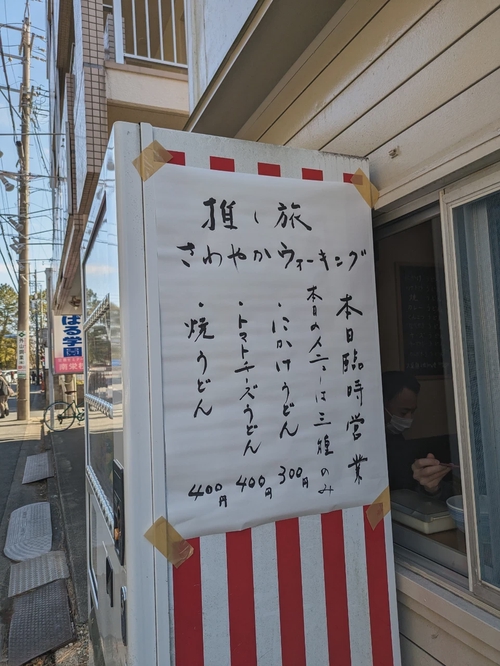 推し旅
さわやかウォーキング
本日臨時営業
本日のメニューは三種のみ
・にかけうどん 300円
・トマトチーズうどん 400円
・焼うどん 400円
はる学園